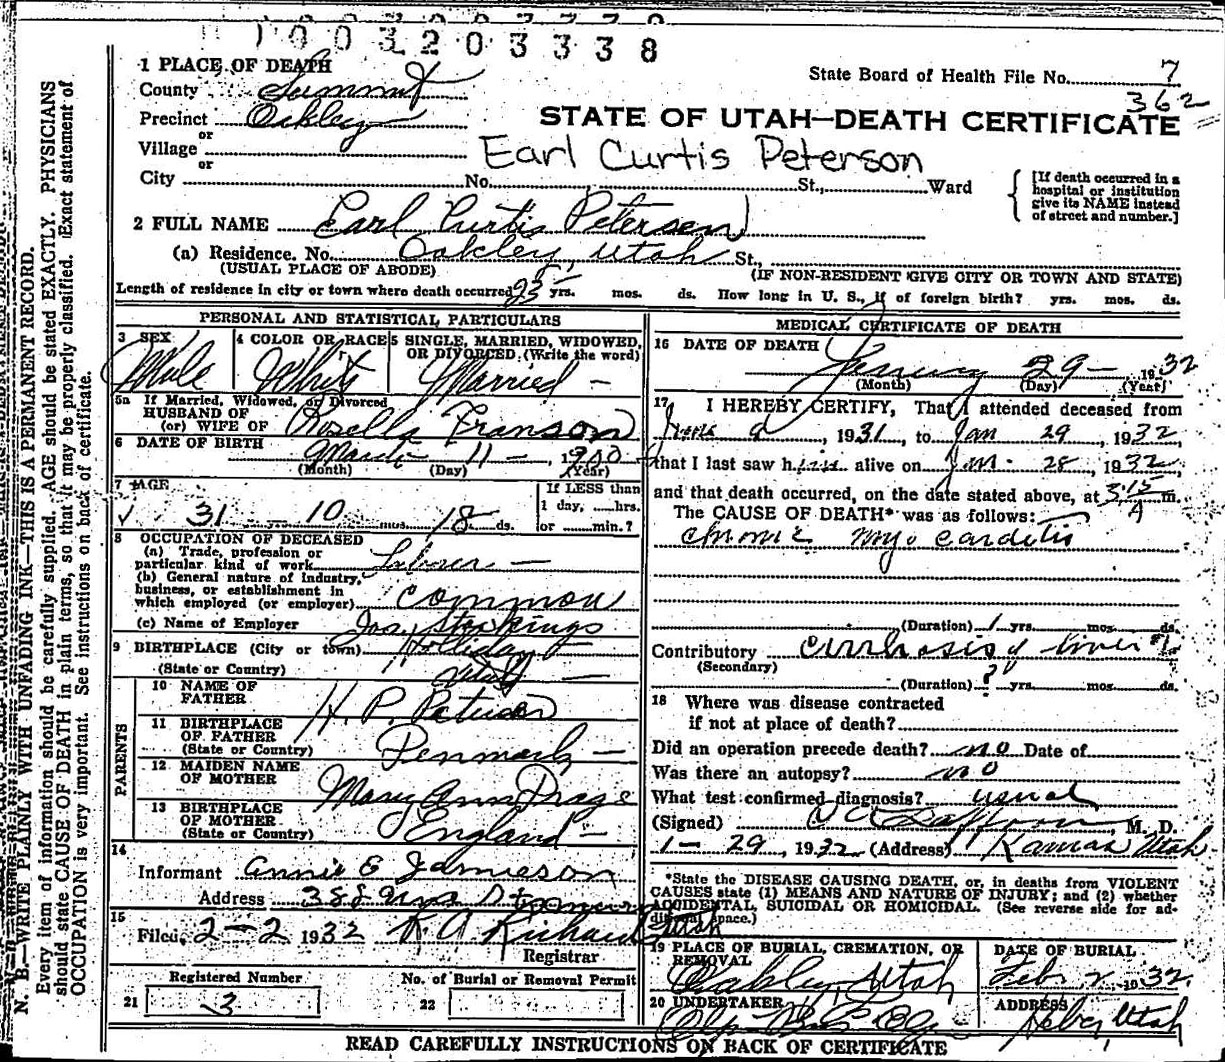 1003203338
1 PLACE OF DEATH
State Board of Health File No. 7
County Summit
362
Precinct Oakley
STATE OF UTAH—DEATH CERTIFICATE
or
Village
Earl Curtis Peterson
or
City No. St., Ward
[If death occurred in a hospital or institution give its NAME instead of street and number.]
2 FULL NAME Earl Curtis Petersen
(a) Residence. No. Oakley, Utah St.,
(USUAL PLACE OF ABODE) (IF NON-RESIDENT GIVE CITY OR TOWN AND STATE)
Length of residence in city or town where death occurred 25 yrs. mos. ds. How long in U. S., if of foreign birth? yrs. mos. ds.
PERSONAL AND STATISTICAL PARTICULARS
3 SEX 4 COLOR OR RACE 5 SINGLE, MARRIED, WIDOWED, OR DIVORCED. (Write the word)
Male White Married —
5a If Married, Widowed, or Divorced
HUSBAND OF
(or) WIFE OF Rosella Franson
6 DATE OF BIRTH
March 11 — , 1900
(Month) (Day) (Year)
7 AGE
If LESS than
1 day, hrs.
31 yrs. 10 mos. 18 ds. or min.?
8 OCCUPATION OF DECEASED
(a) Trade, profession or
particular kind of work Laborer —
(b) General nature of industry,
business, or establishment in
which employed (or employer) common
(c) Name of Employer Jos. Stockings
9 BIRTHPLACE (City or town) Holliday
(State or Country) Utah —
PARENTS
10 NAME OF FATHER H. P. Petersen
11 BIRTHPLACE OF FATHER (State or Country) Denmark —
12 MAIDEN NAME OF MOTHER Mary Ann
13 BIRTHPLACE OF MOTHER (State or Country) England —
14
Informant Annie E Jamieson
Address 388
15
Filed 2 - 2 1932
Registrar
Registered Number No. of Burial or Removal Permit
21 3 22
MEDICAL CERTIFICATE OF DEATH
16 DATE OF DEATH
January 29 — 1932
(Month) (Day) (Year)
17 I HEREBY CERTIFY, That I attended deceased from
, 1931, to Jan 29, 1932,
that I last saw him alive on Jan. 28, 1932,
and that death occurred, on the date stated above, at 3:15 A m.
The CAUSE OF DEATH* was as follows:
Chronic Myocarditis
(Duration) 1 yrs. mos. ds.
Contributory Cirrhosis of liver
(Secondary)
(Duration) ? yrs. mos. ds.
18 Where was disease contracted
if not at place of death?
Did an operation precede death? no Date of
Was there an autopsy? no
What test confirmed diagnosis? usual
(Signed) , M. D.
1 - 29, 1932 (Address) Kamas Utah
*State the DISEASE CAUSING DEATH, or, in deaths from VIOLENT
CAUSES state (1) MEANS AND NATURE OF INJURY; and (2) whether
ACCIDENTAL, SUICIDAL OR HOMICIDAL. (See reverse side for additional space.)
19 PLACE OF BURIAL, CREMATION, OR REMOVAL DATE OF BURIAL
Oakley, Utah Feb 2, 1932
20 UNDERTAKER ADDRESS
Heber, Utah
READ CAREFULLY INSTRUCTIONS ON BACK OF CERTIFICATE
N. B.—WRITE PLAINLY WITH UNFADING INK—THIS IS A PERMANENT RECORD.
Every item of information should be carefully supplied. AGE should be stated EXACTLY. PHYSICIANS
should state CAUSE OF DEATH in plain terms, so that it may be properly classified. Exact statement of
OCCUPATION is very important. See instructions on back of certificate.